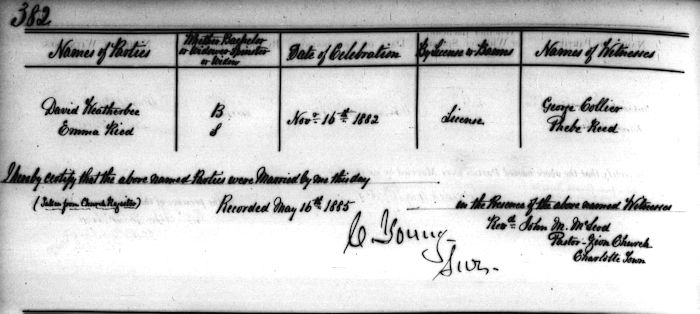 382
Names of Parties
Whether Bachelor or Widower Spinster or Widow
Date of Celebration
By License or Banns
Names of Witnesses
David Heatherbee
Emma Reed
B
S
Novr 16th 1882
License
George Collier
Phebe Reed
I hereby certify that the above named Parties were Married by me this day
(Taken from Church Register)
Recorded May 16th 1885
in the Presence of the above named Witnesses
Revd John M. McLeod
Pastor - Zion Church
Charlotte Town
C Young
Surr.